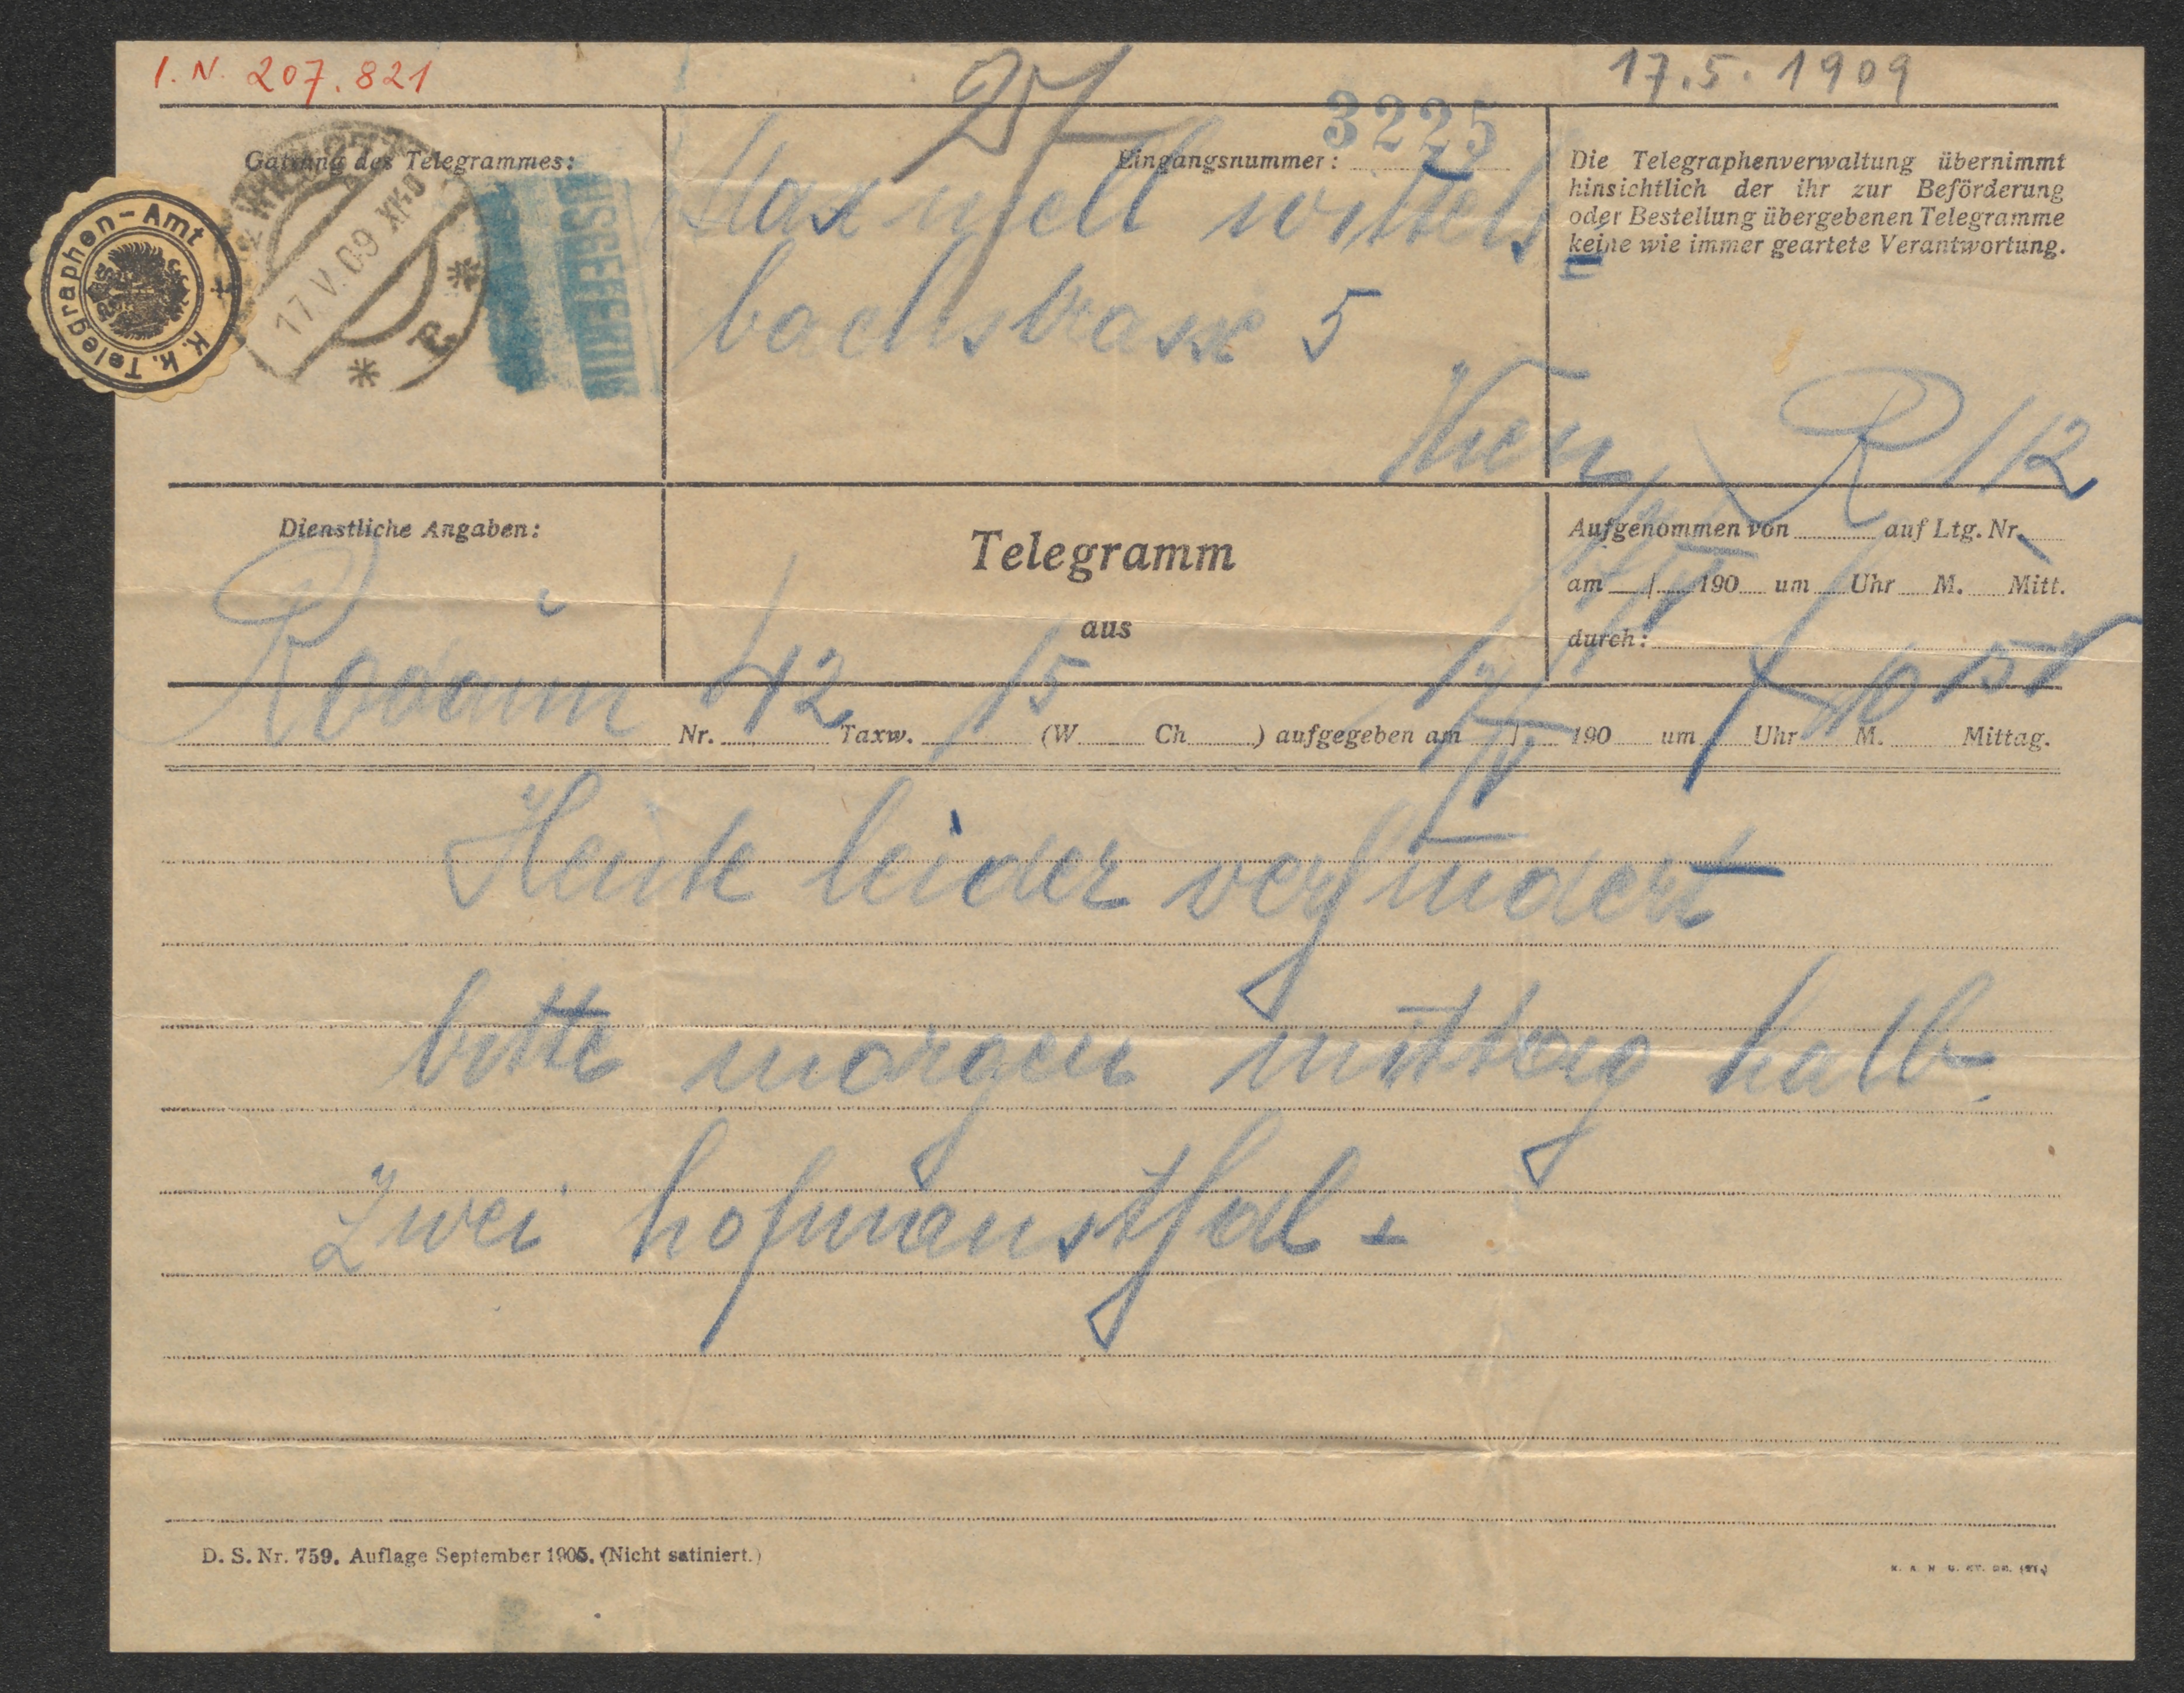 I. N. 207.821
17.5.1909
3225
Gattung des Telegrammes:
Eingangsnummer:
Die Telegraphenverwaltung übernimmt
hinsichtlich der ihr zur Beförderung
oder Bestellung übergebenen Telegramme
keine wie immer geartete Verantwortung.
K. k. Telegraphen-Amt
17.V.09
Max mell wittels=
bachstrasse 5
Wien
R 112
Dienstliche Angaben:
Telegramm
aus
Aufgenommen von auf Ltg. Nr.
am / 190 um Uhr M. Mitt.
durch:
Rodaun 42 15 17/V 10 15
Nr. Taxw. (W. Ch. ) aufgegeben am / 190 um Uhr M. Mittag.
Heute leider verhindert
bitte morgen mittag halb
zwei hofmansthal +
D. S. Nr. 759. Auflage September 1905. (Nicht satiniert.)